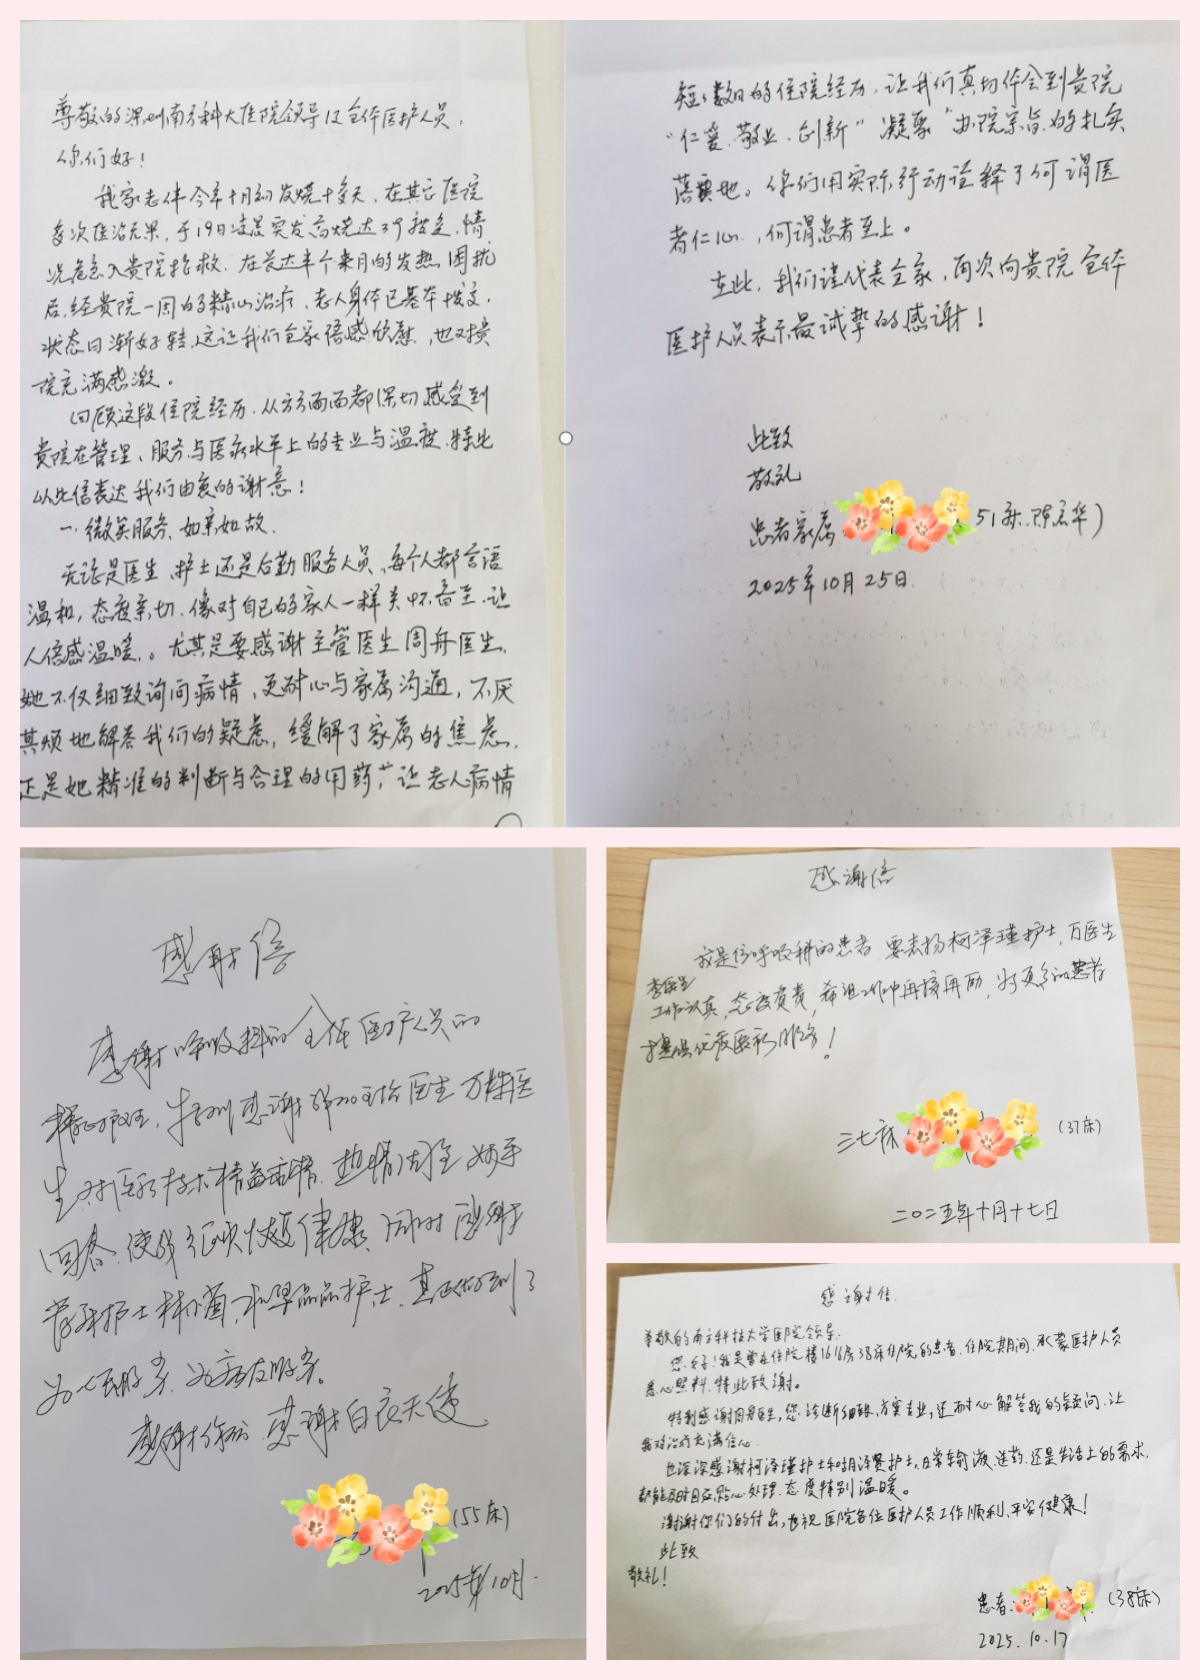 尊敬的深圳南方科大医院领导及全体医护人员，
你们好！
我家老伴今年十月初发烧十多天，在其它医院
多次医治无果，于19日凌晨突发高烧达39接近，情
况危急入贵院抢救．在长达半个来月的发热困扰
后，经贵院一周的精心治疗，老人身体已基本恢复，
状态日渐好转，这让我们全家倍感欣慰，也对贵
院充满感激。
回顾这段住院经历．从方方面面都深切感受到
贵院在管理、服务与医疗水平上的专业与温度．特此
以此信表达我们由衷的谢意！
一．微笑服务．如亲如故．
无论是医生、护士还是后勤服务人员，每个人都言语
温和，态度亲切．像对自己的家人一样关怀备至．让
人倍感温暖．。尤其是要感谢主管医生周舟医生．
她不仅细致询问病情，更耐心与家属沟通，不厌
其烦地解答我们的疑虑，缓解了家属的焦虑．
正是她精准的判断与合理的用药，让老人病情
短短数日的住院经历，让我们真切体会到贵院
“仁爱．敬业．创新”凝聚“办院宗旨的扎实
落地。你们用实际行动诠释了何谓医
者仁心，何谓患者至上。
在此，我们谨代表全家，再次向贵院全体
医护人员表示最诚挚的感谢！
此致
敬礼
患者家属 51床．陈 华）
2025年10月25日
感谢信
感谢呼吸科的全体医护人员的
精心 ，特别感谢 主治医生万 医
生．对医疗技术精益求精．热情 妙手
回春．使我 快速健康．同时感谢
护士林 和 晶晶护士．真正做到了
为人民服务．为病友服务。
感谢你们．感谢白衣天使
（55床）
2025年10月．
感谢信
我是住呼吸科的患者．要表扬柯泽瑾护士，万医生
李医生
工作认真，态度负责，希望工作中再接再励，为更多的患者
提供优质医疗服务！
三七床 （37床）
二〇二五年十月十七日
感谢信
尊敬的南方科技大学医院领导．
您好！我是曾在住院楼1616房38床住院的患者．住院期间．承蒙医护人员
悉心照料．特此致谢。
特别感谢周舟医生，您诊断细致、方案专业，还耐心解答我的疑问．让
我对治疗充满信心．
也深深感谢柯泽瑾护士和胡泽贤护士，日常输液．送药．还是生活上的需求．
都能及时回应．贴心处理．态度特别温暖。
谢谢你们的付出，也祝医院各位医护人员工作顺利、平安健康！
此致
敬礼！
患者： （38床）
2025．10．17